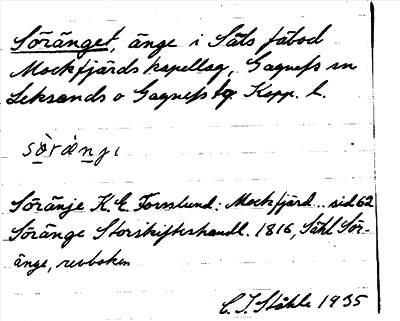 Söränget, änge i Säls fäbod
Mockfjärds kapellag, Gagnefs sn
Leksands o Gagnefs tg. Kopp. l.
sö̀rànʒı
Söränje K. E. Forsslund: Mockfjärd .. sid 62
Söränge Storskifteshandl. 1816, Sähl Sör-
änge, revboken
C. I. Ståhle 1935